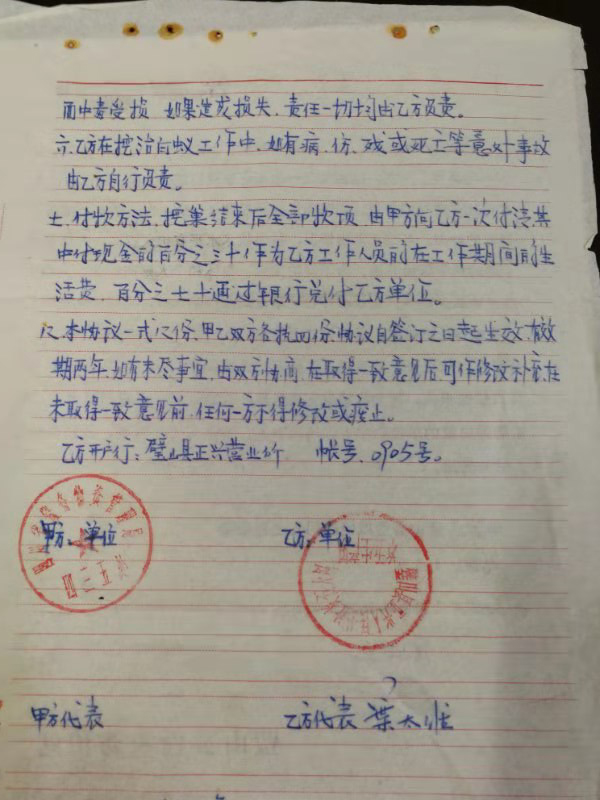 而中毒受损，如果造成损失，责任一切均由乙方负责。
六、乙方在挖治白蚁工作中，如有病、伤、残或死亡等意外事故
由乙方自行负责。
七、付款方法，挖巢结束后全部款项，由甲方向乙方一次付清，其
中付现金的百分之三十作为乙方工作人员的在工作期间的生
活费，百分之七十通过银行兑付乙方单位。
八、本协议一式八份，甲乙双方各执四份，协议自签订之日起生效，有效
期两年，如有未尽事宜，由双方协商，在取得一致意见后，可作修改补充，在
未取得一致意见前，任何一方不得修改或废止。
乙方开户行：璧山县正兴营业所 帐号：0905号。
甲方：单位
乙方：单位
甲方代表
乙方代表